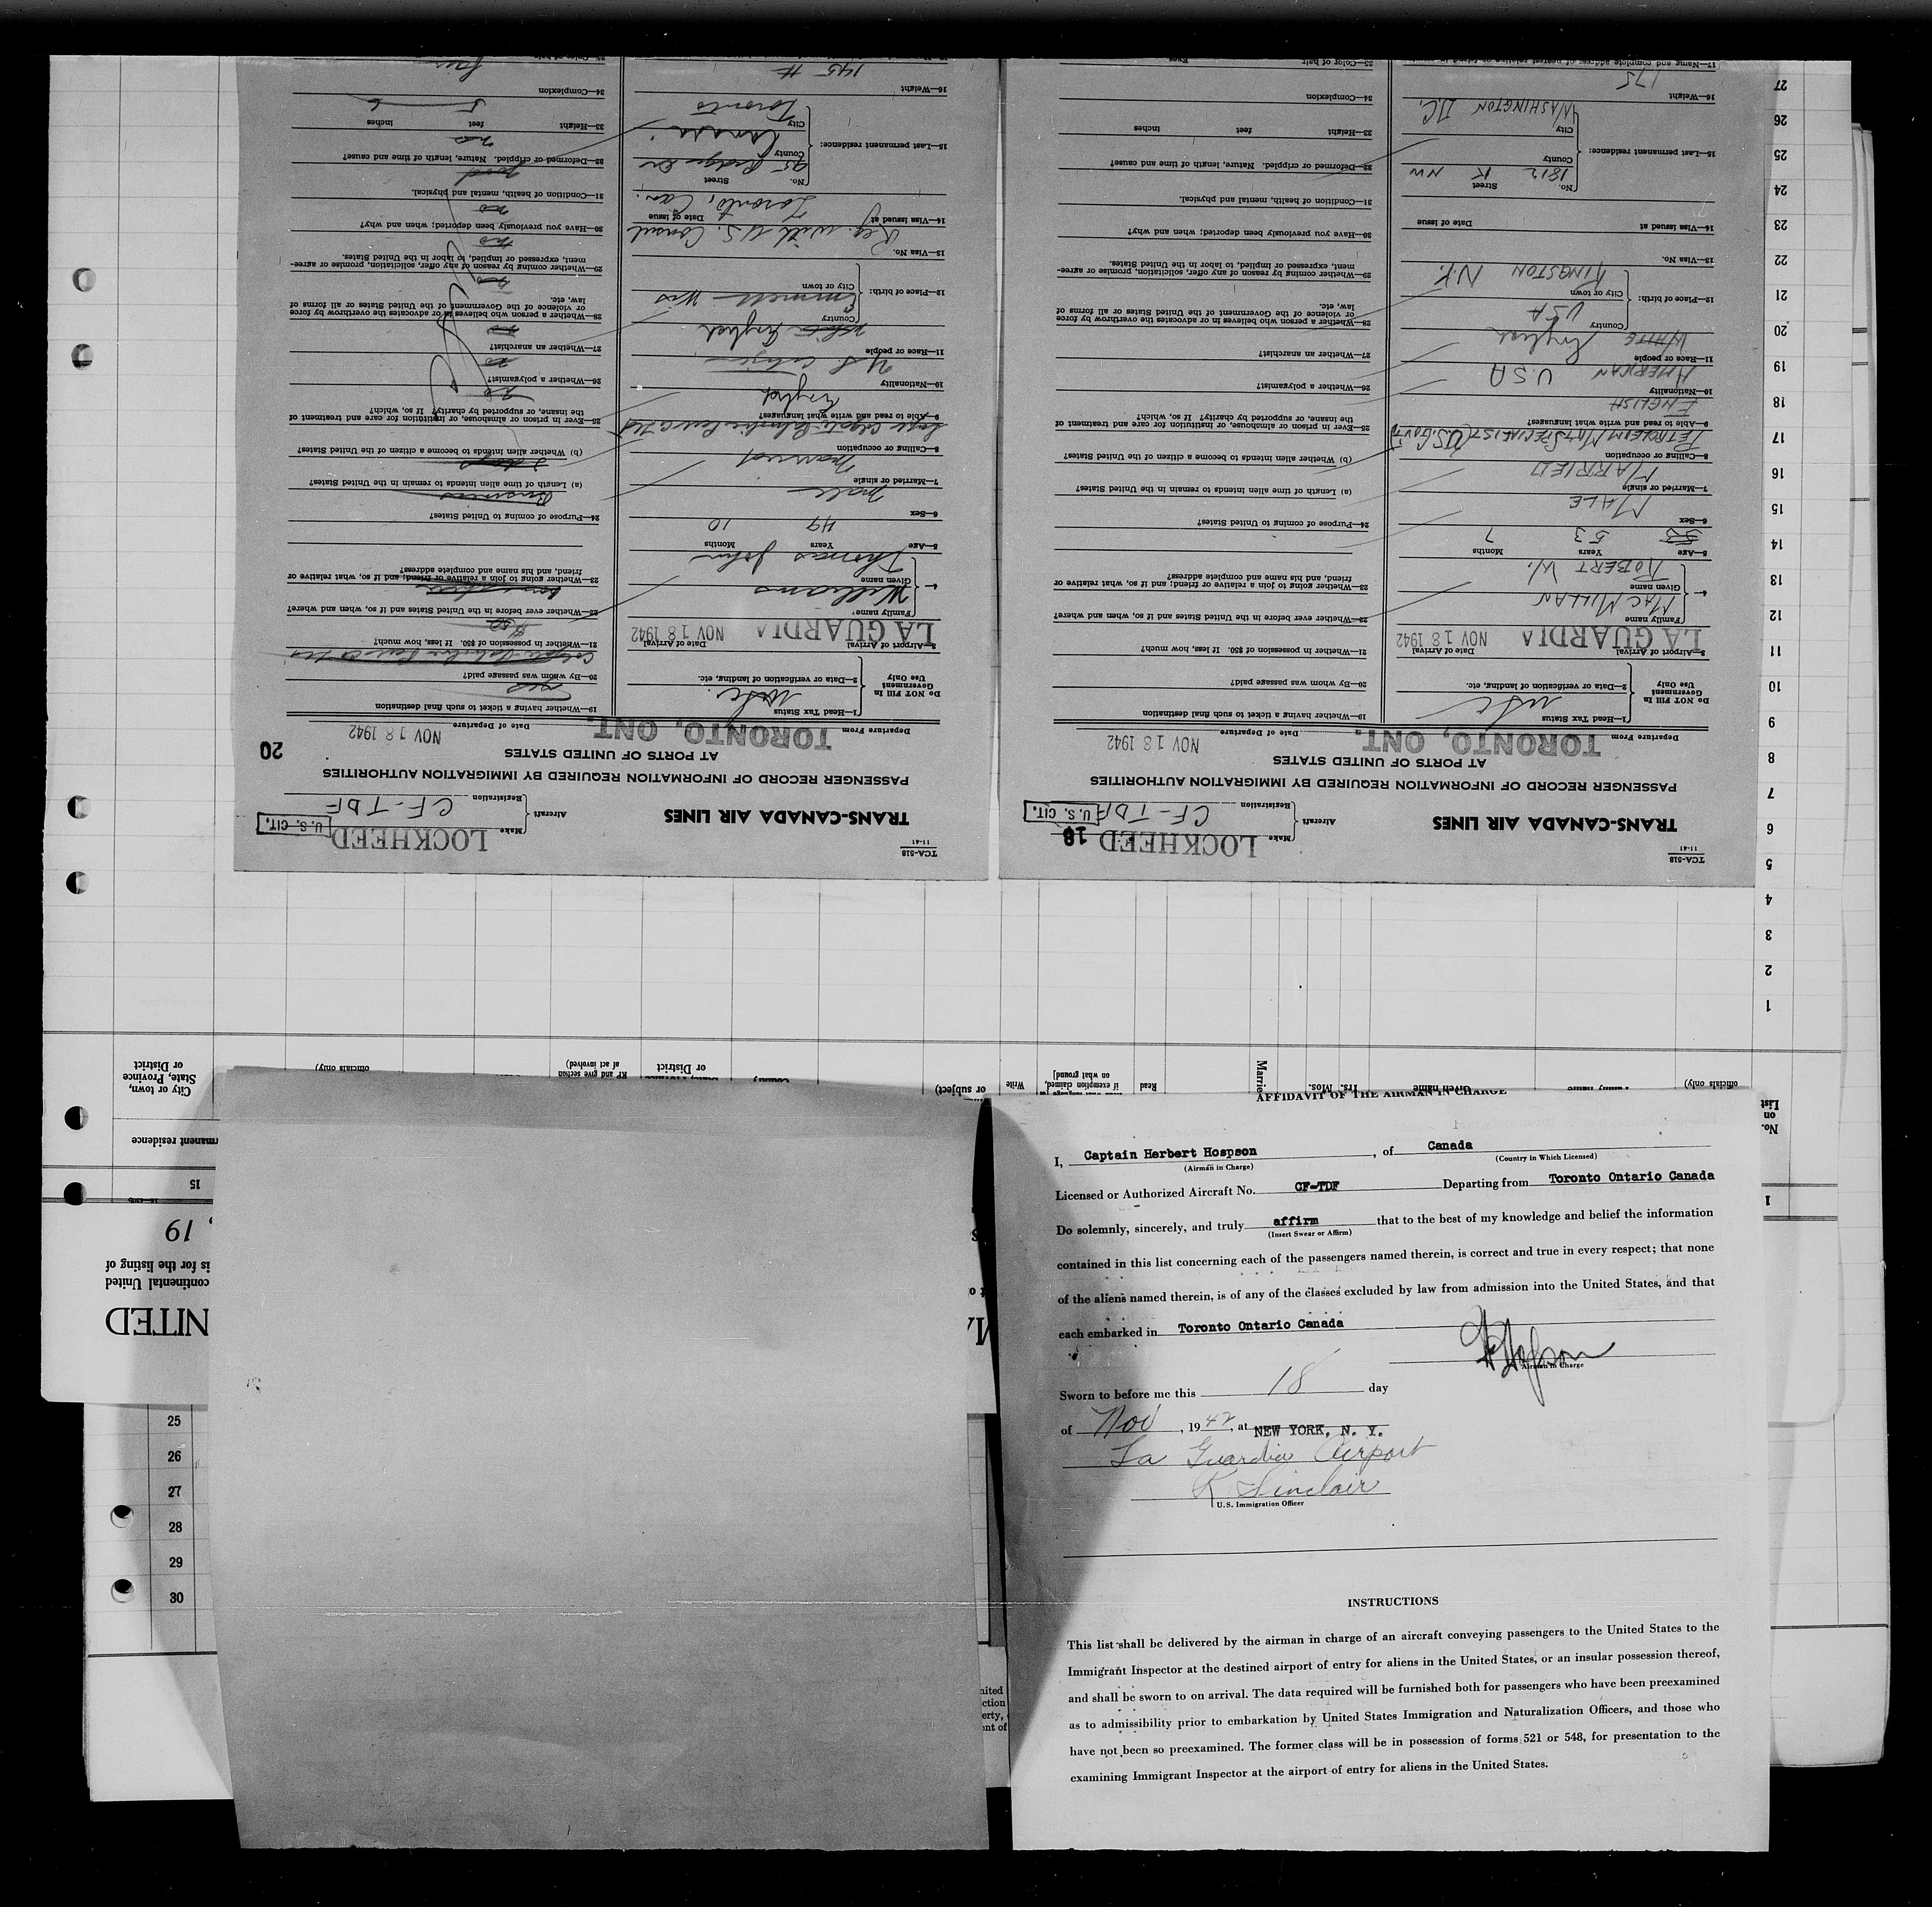 AFFIDAVIT OF THE AIRMAN IN CHARGE
I, Captain Herbert Hospson, of Canada
(Airman in Charge) (Country in Which Licensed)
Licensed or Authorized Aircraft No. CF-TDF Departing from Toronto Ontario Canada
Do solemnly, sincerely, and truly affirm that to the best of my knowledge and belief the information
(Insert Swear or Affirm)
contained in this list concerning each of the passengers named therein, is correct and true in every respect; that none
of the aliens named therein, is of any of the classes excluded by law from admission into the United States, and that
each embarked in Toronto Ontario Canada
Airman in Charge
Sworn to before me this 18 day
of Nov, 1942, at NEW YORK, N. Y.
La Guardia Airport
K Sinclair
U.S. Immigration Officer
INSTRUCTIONS
This list shall be delivered by the airman in charge of an aircraft conveying passengers to the United States to the
Immigrant Inspector at the destined airport of entry for aliens in the United States, or an insular possession thereof,
and shall be sworn to on arrival. The data required will be furnished both for passengers who have been preexamined
as to admissibility prior to embarkation by United States Immigration and Naturalization Officers, and those who
have not been so preexamined. The former class will be in possession of forms 521 or 548, for presentation to the
examining Immigrant Inspector at the airport of entry for aliens in the United States.
25
26
27
28
29
30
TCA-518
11-41
TRANS-CANADA AIR LINES
Aircraft
Make LOCKHEED 18
Registration CF-TDF U. S. CIT.
PASSENGER RECORD OF INFORMATION REQUIRED BY IMMIGRATION AUTHORITIES
AT PORTS OF UNITED STATES
Departure From TORONTO, ONT. Date of Departure NOV 18 1942
DO NOT FILL IN
Government
Use Only
1—Head Tax Status USC
2—Data or verification of landing, etc.
3—Airport of Arrival LA GUARDIA Date of Arrival NOV 18 1942
4
Family name MACMILLAN
Given name ROBERT W.
5—Age 53 Years 7 Months
6—Sex MALE
7—Married or single MARRIED
8—Calling or occupation PETROLEUM MATS SPECIALIST (U.S. GOVT)
9—Able to read and write what languages? ENGLISH
10—Nationality AMERICAN USA
11—Race or people WHITE English
12—Place of birth:
Country USA
City or town KINGSTON N.Y.
13—Visa No.
14—Visa issued at Date of issue
15—Last permanent residence:
No. 1812 Street K NW
County
City WASHINGTON D.C.
16—Weight 175
17—Name and complete address of nearest relative or friend in
19—Whether having a ticket to such final destination
20—By whom was passage paid?
21—Whether in possession of $50. If less, how much?
22—Whether ever before in the United States and if so, when and where?
23—Whether going to join a relative or friend; and if so, what relative or
friend, and his name and complete address?
24—Purpose of coming to United States?
(a) Length of time alien intends to remain in the United States?
(b) Whether alien intends to become a citizen of the United States?
25—Ever in prison or almshouse, or institution for care and treatment of
the insane, or supported by charity? If so, which?
26—Whether a polygamist?
27—Whether an anarchist?
28—Whether a person who believes in or advocates the overthrow by force
or violence of the Government of the United States or all forms of
law, etc.
29—Whether coming by reason of any offer, solicitation, promise or agree-
ment, expressed or implied, to labor in the United States.
30—Have you previously been deported; when and why?
31—Condition of health, mental and physical.
32—Deformed or crippled. Nature, length of time and cause?
33—Height feet inches
34—Complexion
35—Color of hair Eyes
TCA-518
11-41
TRANS-CANADA AIR LINES
Aircraft
Make LOCKHEED
Registration CF-TDF U. S. CIT.
PASSENGER RECORD OF INFORMATION REQUIRED BY IMMIGRATION AUTHORITIES
AT PORTS OF UNITED STATES 20
Departure From TORONTO, ONT. Date of Departure NOV 18 1942
DO NOT FILL IN
Government
Use Only
1—Head Tax Status USC
2—Data or verification of landing, etc.
3—Airport of Arrival LA GUARDIA Date of Arrival NOV 18 1942
4
Family name Williams
Given name Thomas John
5—Age 49 Years 10 Months
6—Sex male
7—Married or single married
8—Calling or occupation
9—Able to read and write what languages? English
10—Nationality U.S. Citizen
11—Race or people White English
12—Place of birth:
Country
City or town Emmett Wis
13—Visa No. Reg. with U.S. Consul
14—Visa issued at Toronto, Can. Date of issue
15—Last permanent residence:
No. 95 Street
County Canada
City Toronto
16—Weight 145 #
19—Whether having a ticket to such final destination yes
20—By whom was passage paid?
21—Whether in possession of $50. If less, how much? $50
22—Whether ever before in the United States and if so, when and where?
23—Whether going to join a relative or friend; and if so, what relative or
friend, and his name and complete address?
24—Purpose of coming to United States? Business
(a) Length of time alien intends to remain in the United States? 2 days
(b) Whether alien intends to become a citizen of the United States?
25—Ever in prison or almshouse, or institution for care and treatment of
the insane, or supported by charity? If so, which? no
26—Whether a polygamist? no
27—Whether an anarchist? no
28—Whether a person who believes in or advocates the overthrow by force
or violence of the Government of the United States or all forms of
law, etc. no
29—Whether coming by reason of any offer, solicitation, promise or agree-
ment, expressed or implied, to labor in the United States. no
30—Have you previously been deported; when and why? no
31—Condition of health, mental and physical. good
32—Deformed or crippled. Nature, length of time and cause? no
33—Height 5 feet 6 inches
34—Complexion fair
No.
on
List
officials only)
Given name
Yrs. Mos.
Read
if exemption claimed,
on what ground]
Write
or subject)
or District
RP and give section
of act involved)
officials only)
City or town,
State, Province
or District
rmanent residence
1
15
1
2
3
4
5
6
7
8
9
10
11
12
13
14
15
16
17
18
19
20
21
22
23
24
25
26
27
NITED
continental United
is for the listing of
, 19